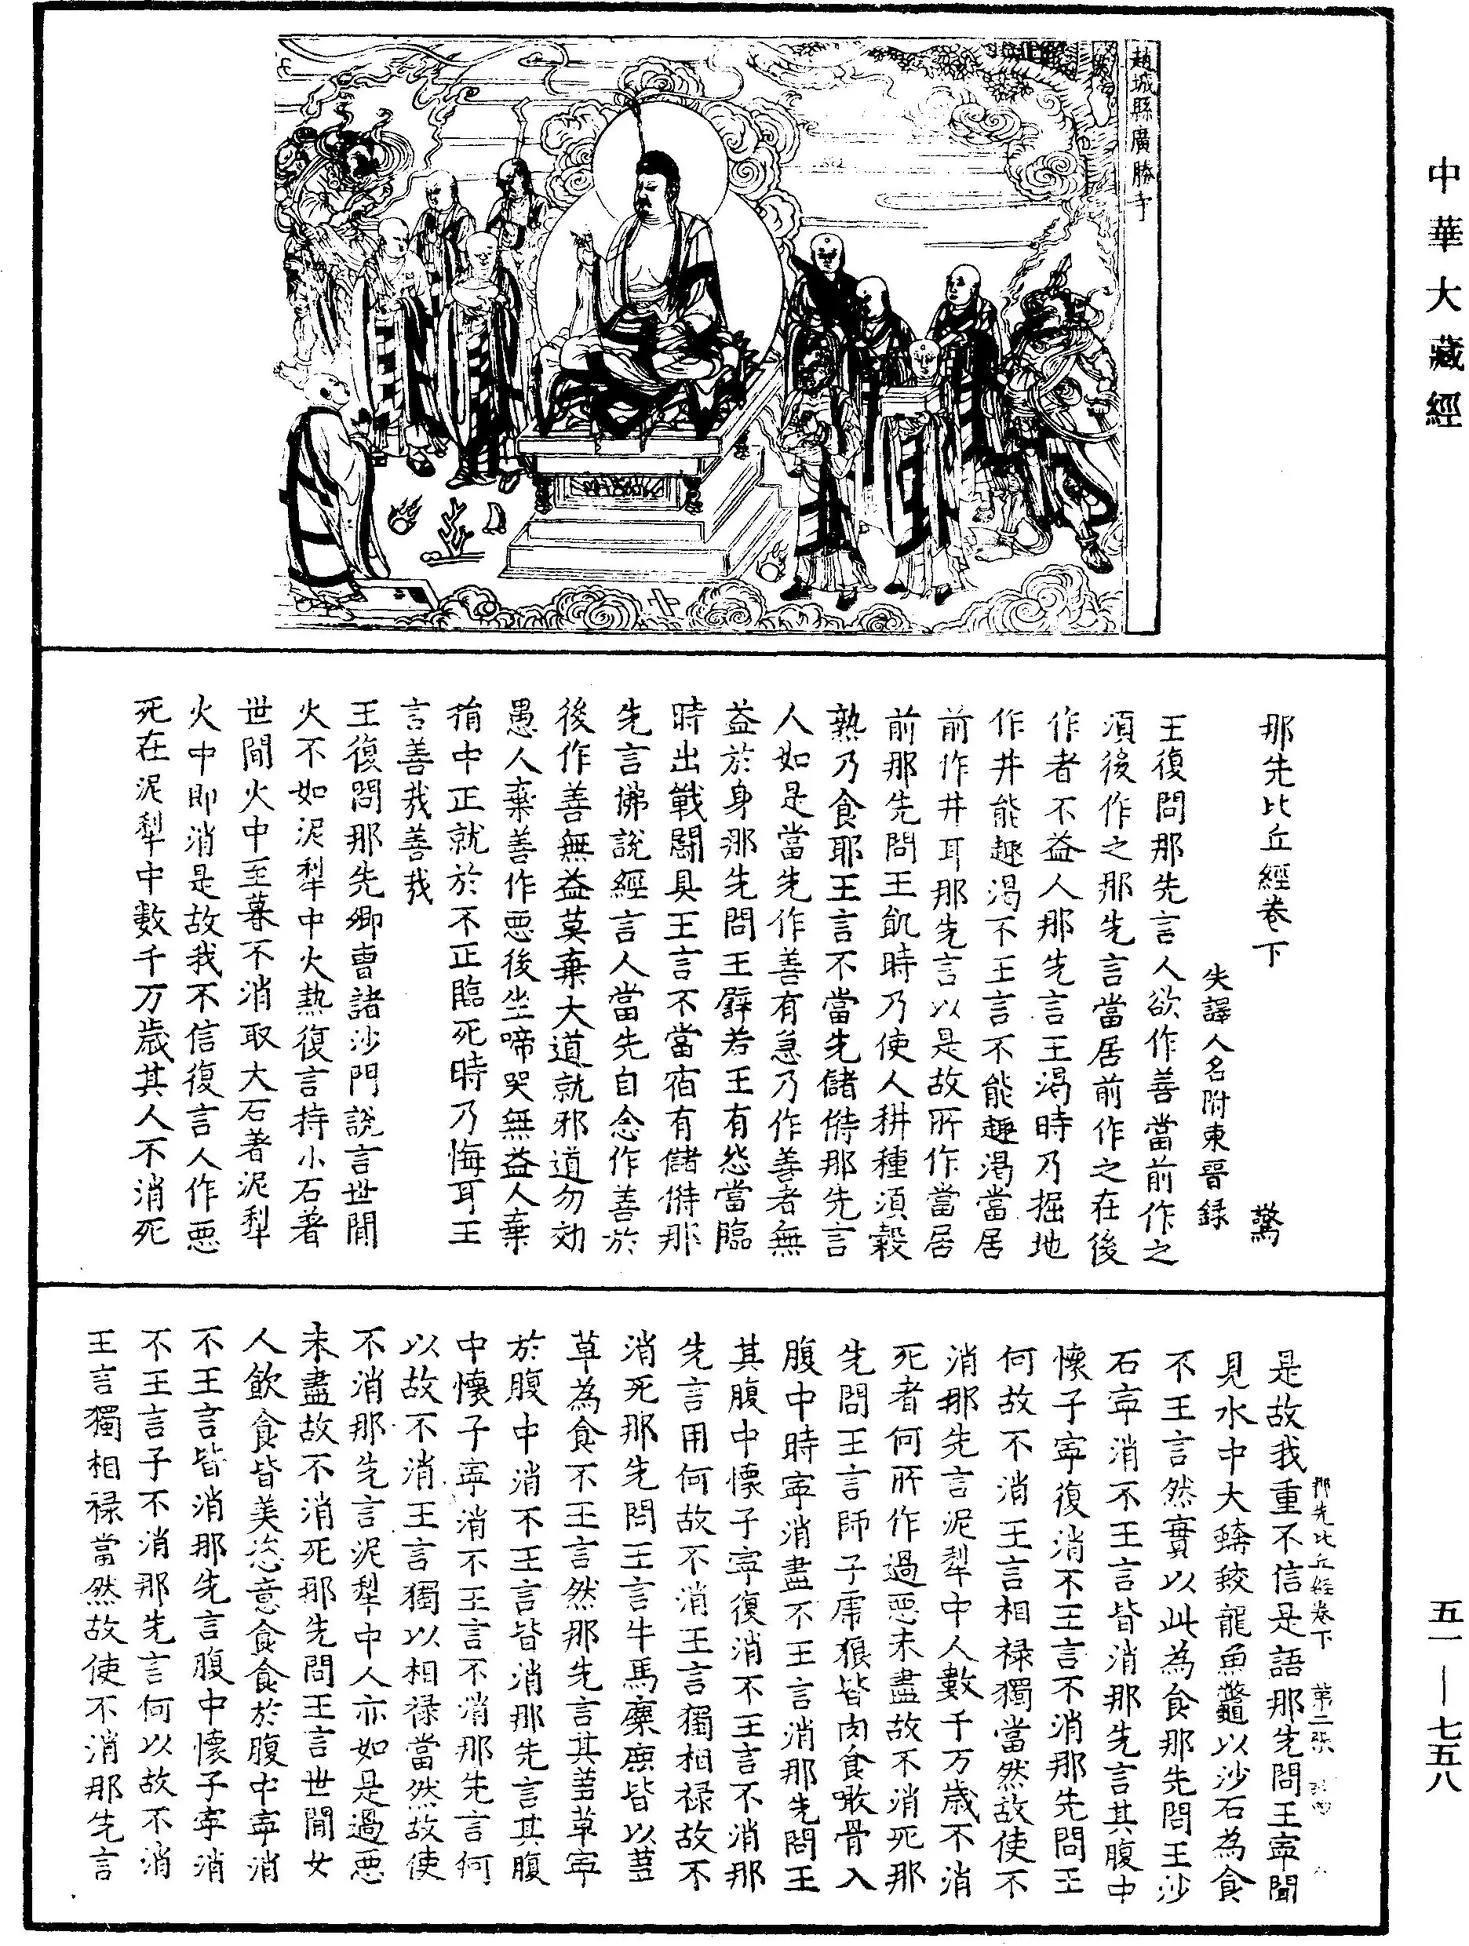 中華大藏經
趙城縣廣勝寺
那先比丘經卷下　驚
失譯人名附東晉録
王復問那先言人欲作善當前作之
須後作之那先言當居前作之在後
作者不益人那先言王渴時乃掘地
作井能趣渴不王言不能趣渴當居
前作井耳那先言以是故所作當居
前那先問王飢時乃使人耕種須穀
熟乃食耶王言不當先儲偫那先言
人如是當先作善有急乃作善者無
益於身那先問王譬若王有怨當臨
時出戰鬪具王言不當宿有儲偫那
先言佛說經言人當先自念作善於
後作善無益莫棄大道就邪道勿効
愚人棄善作惡後坐啼哭無益人棄
捐中正就於不正臨死時乃悔耳王
言善哉善哉
王復問那先卿曹諸沙門說言世間
火不如泥犁中火熱復言持小石著
世間火中至暮不消取大石著泥犁
火中即消是故我不信復言人作惡
死在泥犁中數千万歲其人不消死
是故我重不信是語那先問王寧聞
見水中大蟒蛟龍魚鼈以沙石為食
不王言然實以此為食那先問王沙
石寧消不王言皆消那先言其腹中
懷子寧復消不王言不消那先問王
何故不消王言相禄獨當然故使不
消那先言泥犁中人數千万歲不消
死者何所作過惡未盡故不消死那
先問王言師子虎狼皆肉食噉骨入
腹中時寧消盡不王言消那先問王
其腹中懷子寧復消不王言不消那
先言用何故不消王言獨相禄故不
消死那先問王言牛馬麋鹿皆以蒭
草為食不王言然那先言其蒭草寧
於腹中消不王言皆消那先言其腹
中懷子寧消不王言不消那先言何
以故不消王言獨以相禄當然故使
不消那先言泥犁中人亦如是過惡
未盡故不消死那先問王言世間女
人飲食皆美恣意食食於腹中寧消
不王言皆消那先言腹中懷子寧消
不王言子不消那先言何以故不消
王言獨相禄當然故使不消那先言
那先比丘經卷下　第二張
五一—七五八